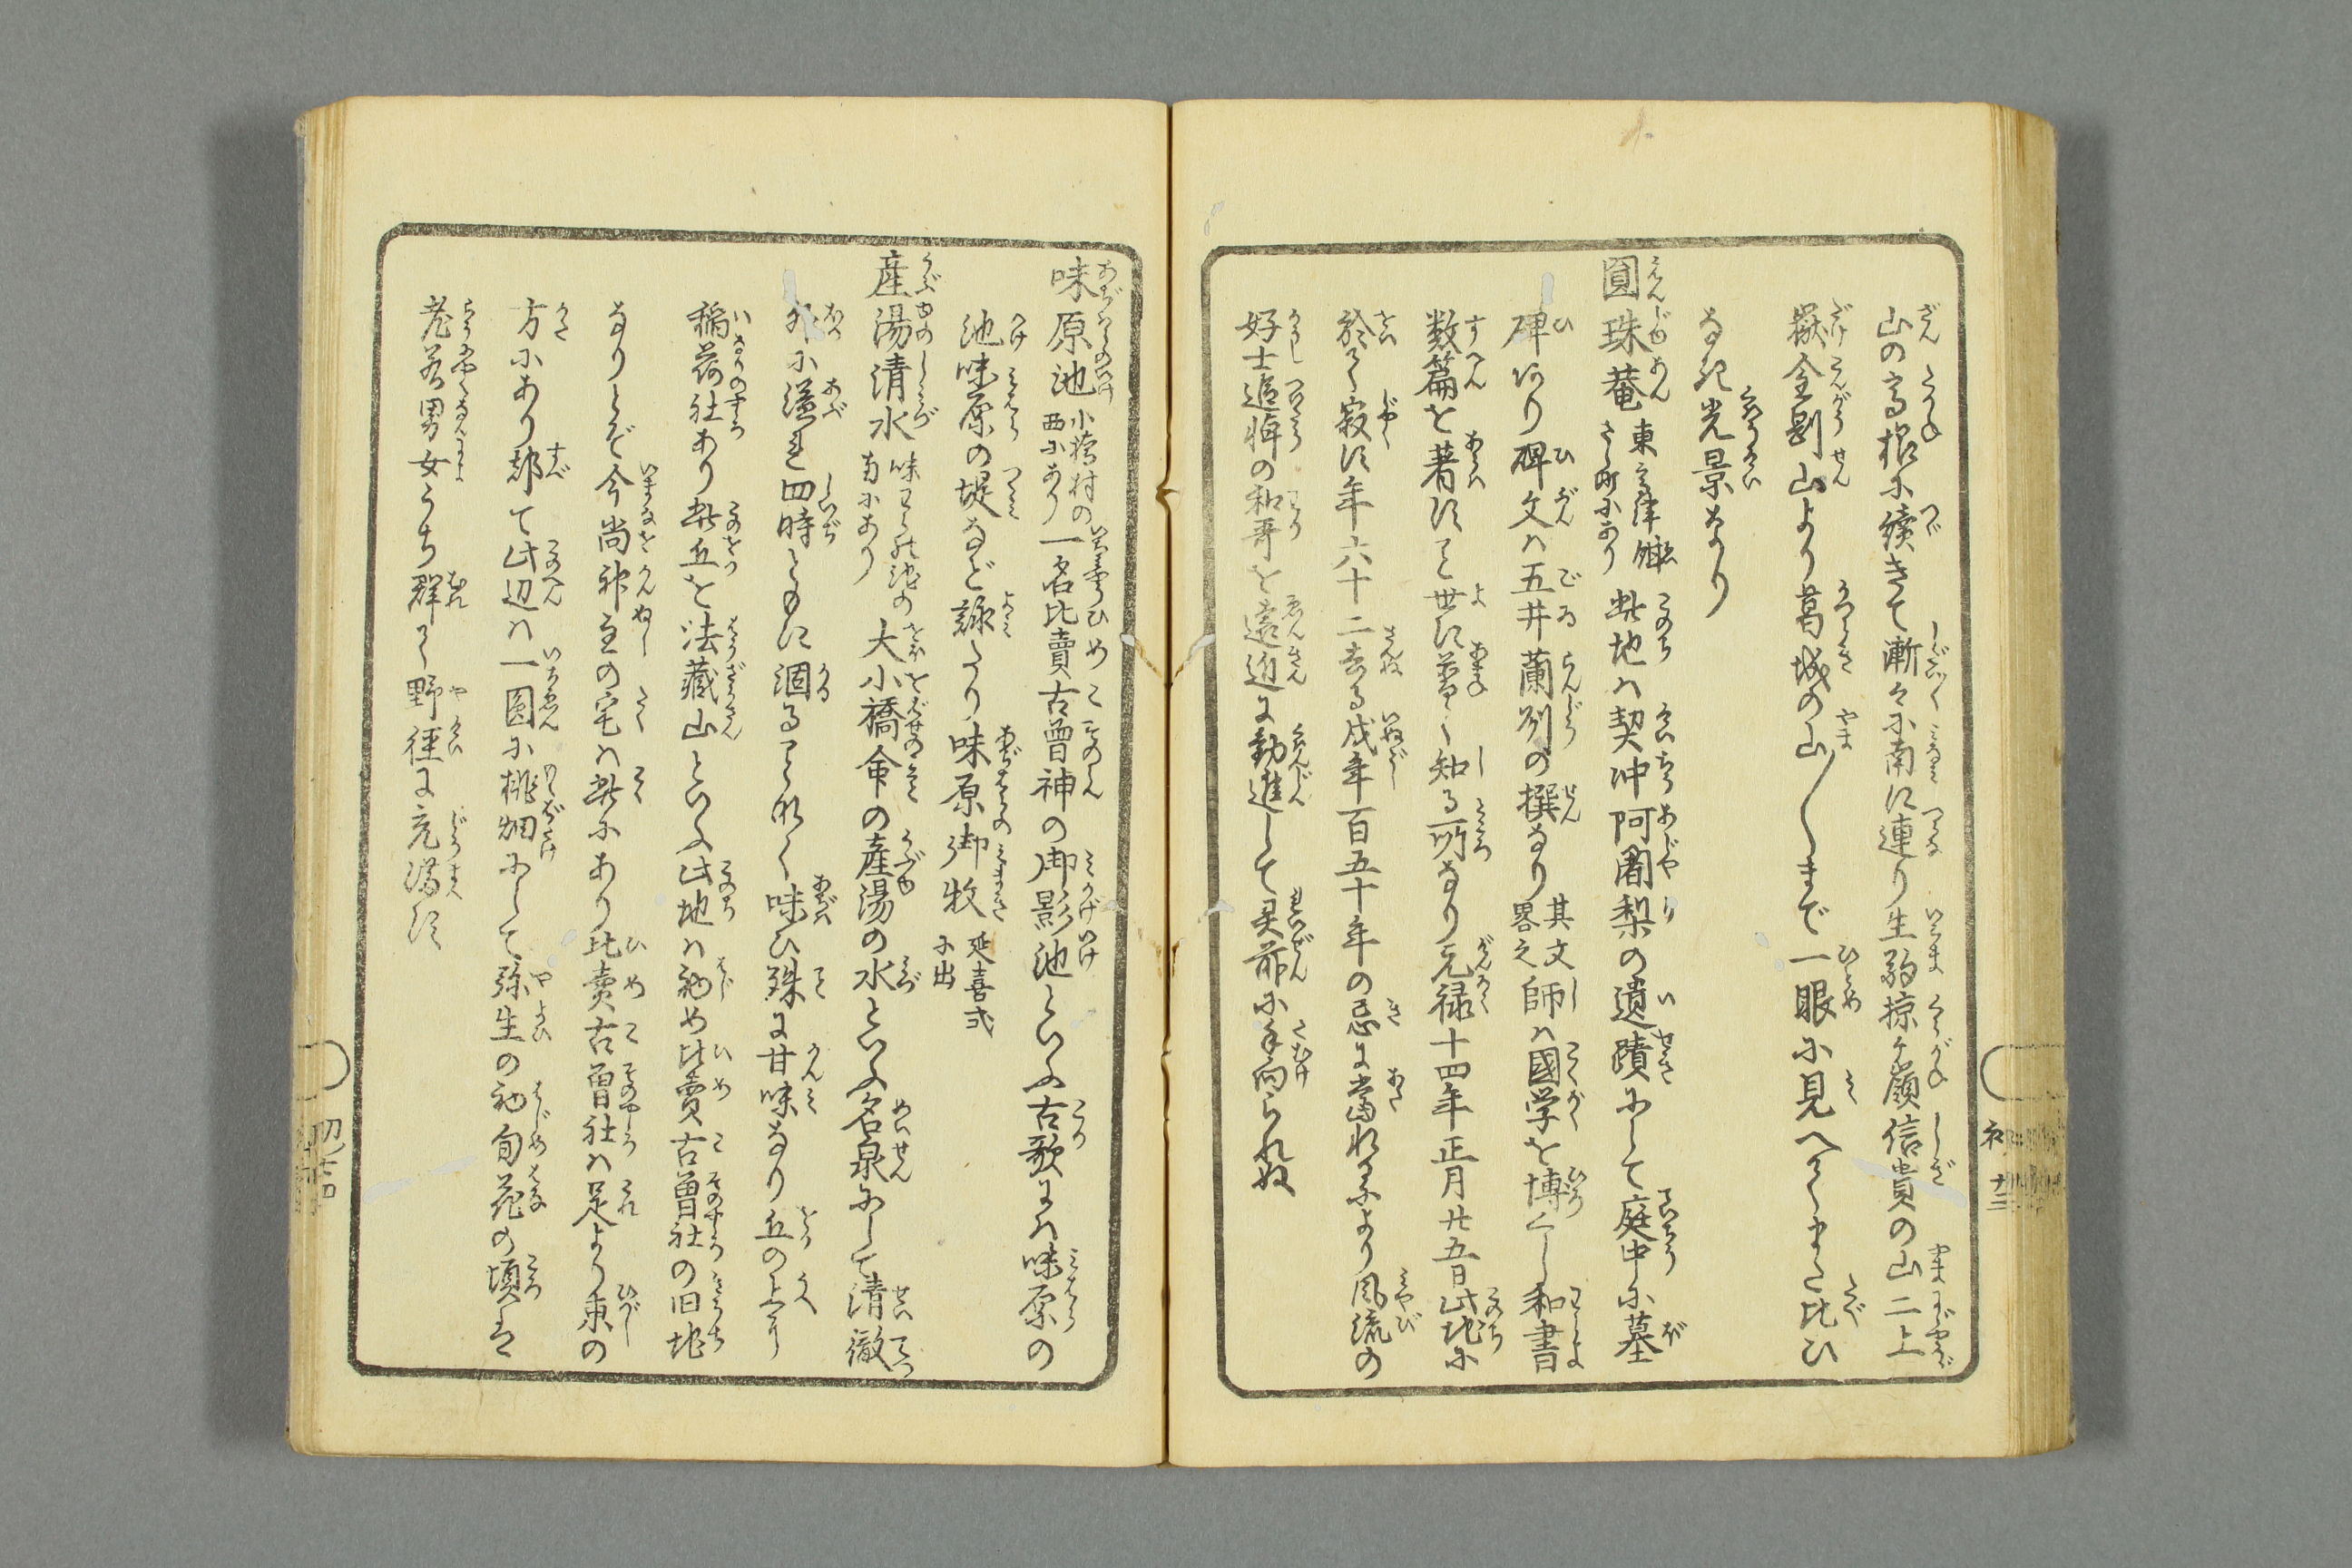 山の高根に續きて漸々に南に連り生駒掠ケ嶺信貴の山二上
嶽金剛山より葛城の山〳〵まで一眼に見へてまた比ひ
なき光景なり
圓珠菴 東高津 さし町にあり 此地ハ契冲阿闍梨の遺蹟にして庭中に墓
碑あり碑文ハ五井蘭洲の撰なり 其文畧之 師ハ國学を博くし和書
数篇を著すこと世に普く知る所なり元禄十四年正月廿五日此地に
於て寂す年六十二去る戌年百五十年の忌に當れるより風流の
好士追悼の和哥を遠近に勧進して灵前に手向られぬ
初 十三
味原池 小橋村の西にあり 一名比賣古曽神の御影池といふ古歌にハ味原の
池味原の堤など詠たり味原御牧 延喜式に出
産湯清水 味はら池の南にあり 大小橋命の産湯の水といふ名泉にして清徹
外に溢れ四時ともに涸ることなく味ひ殊に甘味なり丘の上に
稲荷社あり此丘を法藏山といふ此地ハ初め比賣古曽社の旧地
なりとぞ今尚神主の宅ハ此にあり比賣古曽社ハ是より東の
方にあり都て此辺ハ一圓に桃畑にして弥生の初旬花の頃は
老若男女うち群て野徑に充満す
初 十四